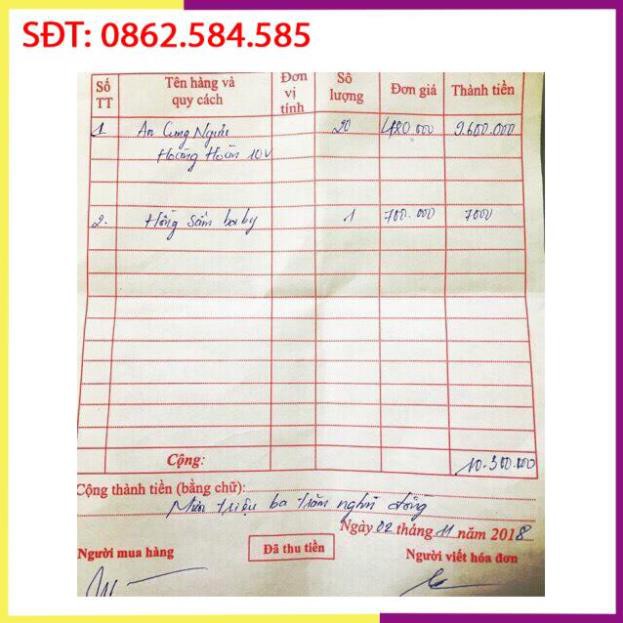 SĐT: 0862.584.585
Số TT	Tên hàng và quy cách	Đơn vị tính	Số lượng	Đơn giá	Thành tiền
1	An Cung Ngưu	20	480.000	9.600.000
Hoàng Hoàn 10V
2.	Hồng Sâm baby	1	700.000	7000
Cộng:	10.300.000
Cộng thành tiền (bằng chữ):
Mười triệu ba trăm nghìn đồng
Ngày 02 tháng 11 năm 2018
Người mua hàng	Đã thu tiền	Người viết hóa đơn